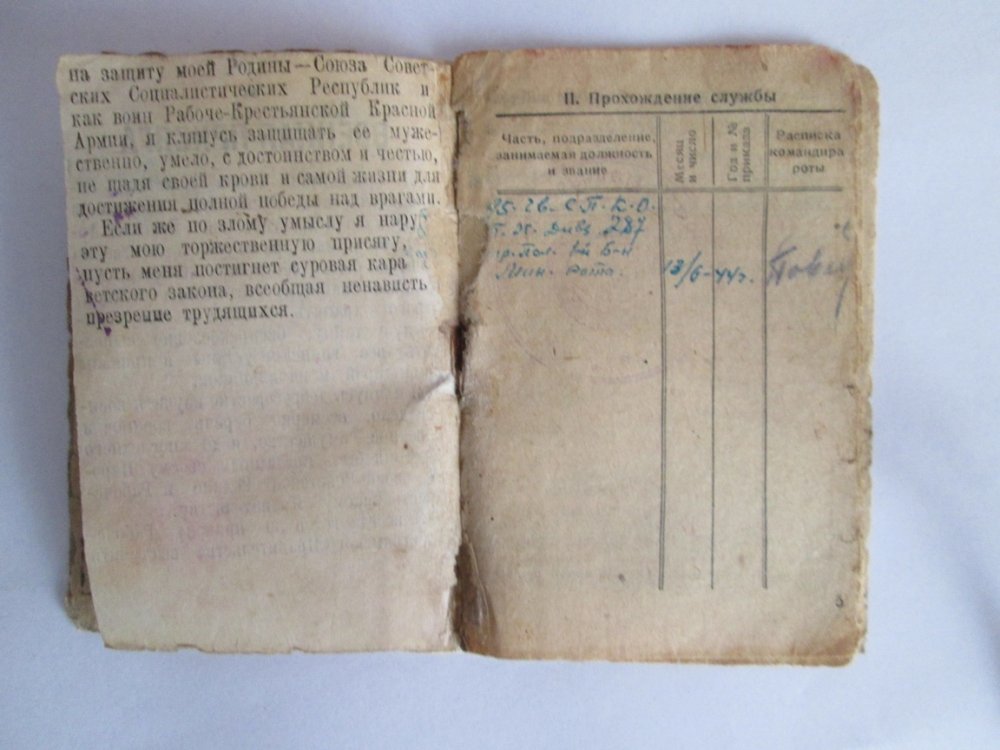 на защиту моей Родины—Союза Совет-
ских Социалистических Республик и
как воин Рабоче-Крестьянской Красной
Армии, я клянусь защищать ее муже-
ственно, умело, с достоинством и честью,
не щадя своей крови и самой жизни для
достижения полной победы над врагами.
Если же по злому умыслу я нару
эту мою торжественную присягу,
пусть меня постигнет суровая кара
ветского закона, всеобщая ненависть
презрение трудящихся.
II. Прохождение службы
Часть, подразделение,
занимаемая должность
и звание
Месяц
и число
Год и №
приказа
Расписка
командира
роты
95. гв. С. П. К. О.
Див. 287
Мин. рота. 13/6-44г.
5